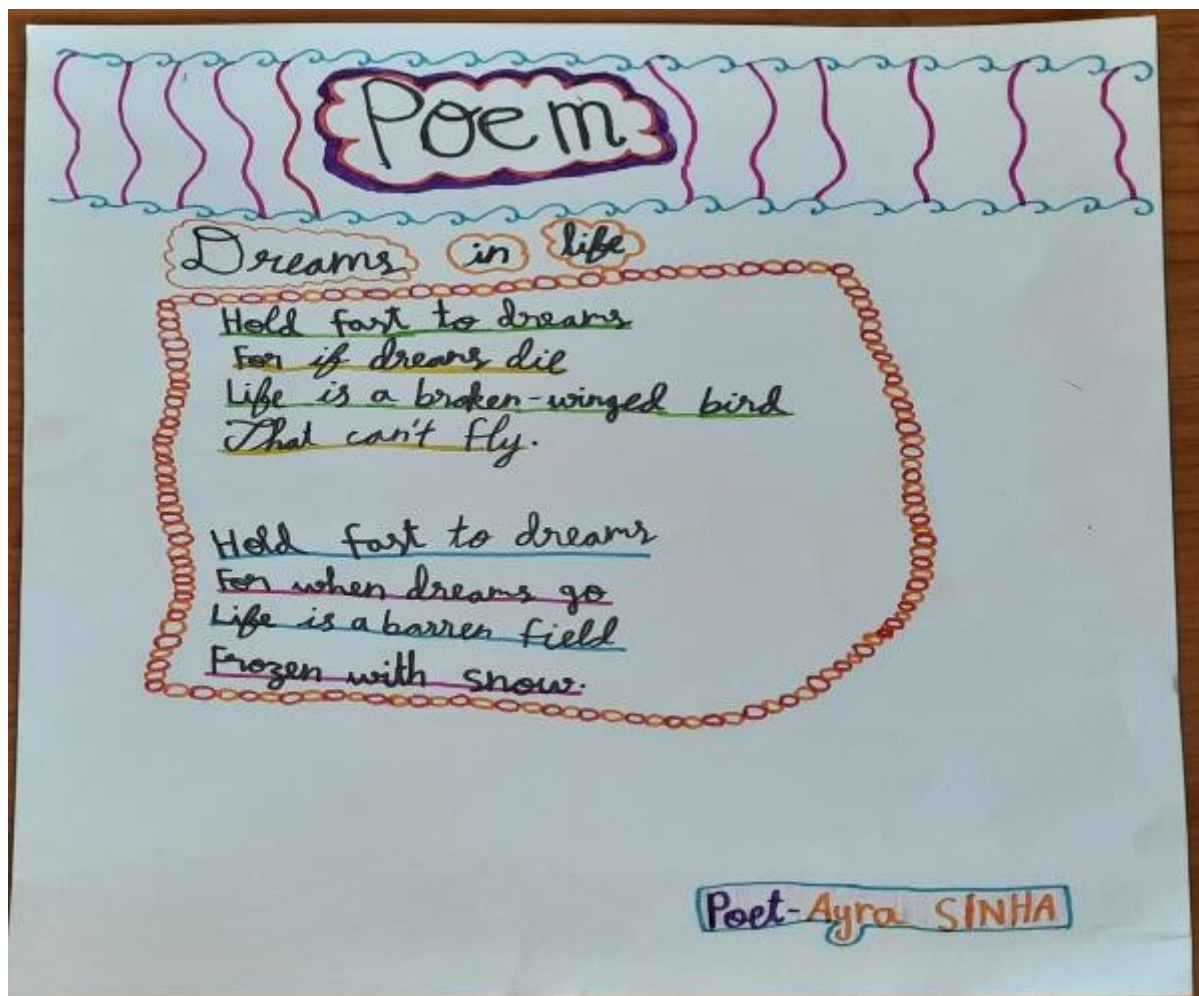 Poem
Dreams in life
Hold fast to dreams
For if dreams die
Life is a broken-winged bird
That can't fly.
Hold fast to dreams
For when dreams go
Life is a barren field
Frozen with snow.
Poet-Ayra SINHA